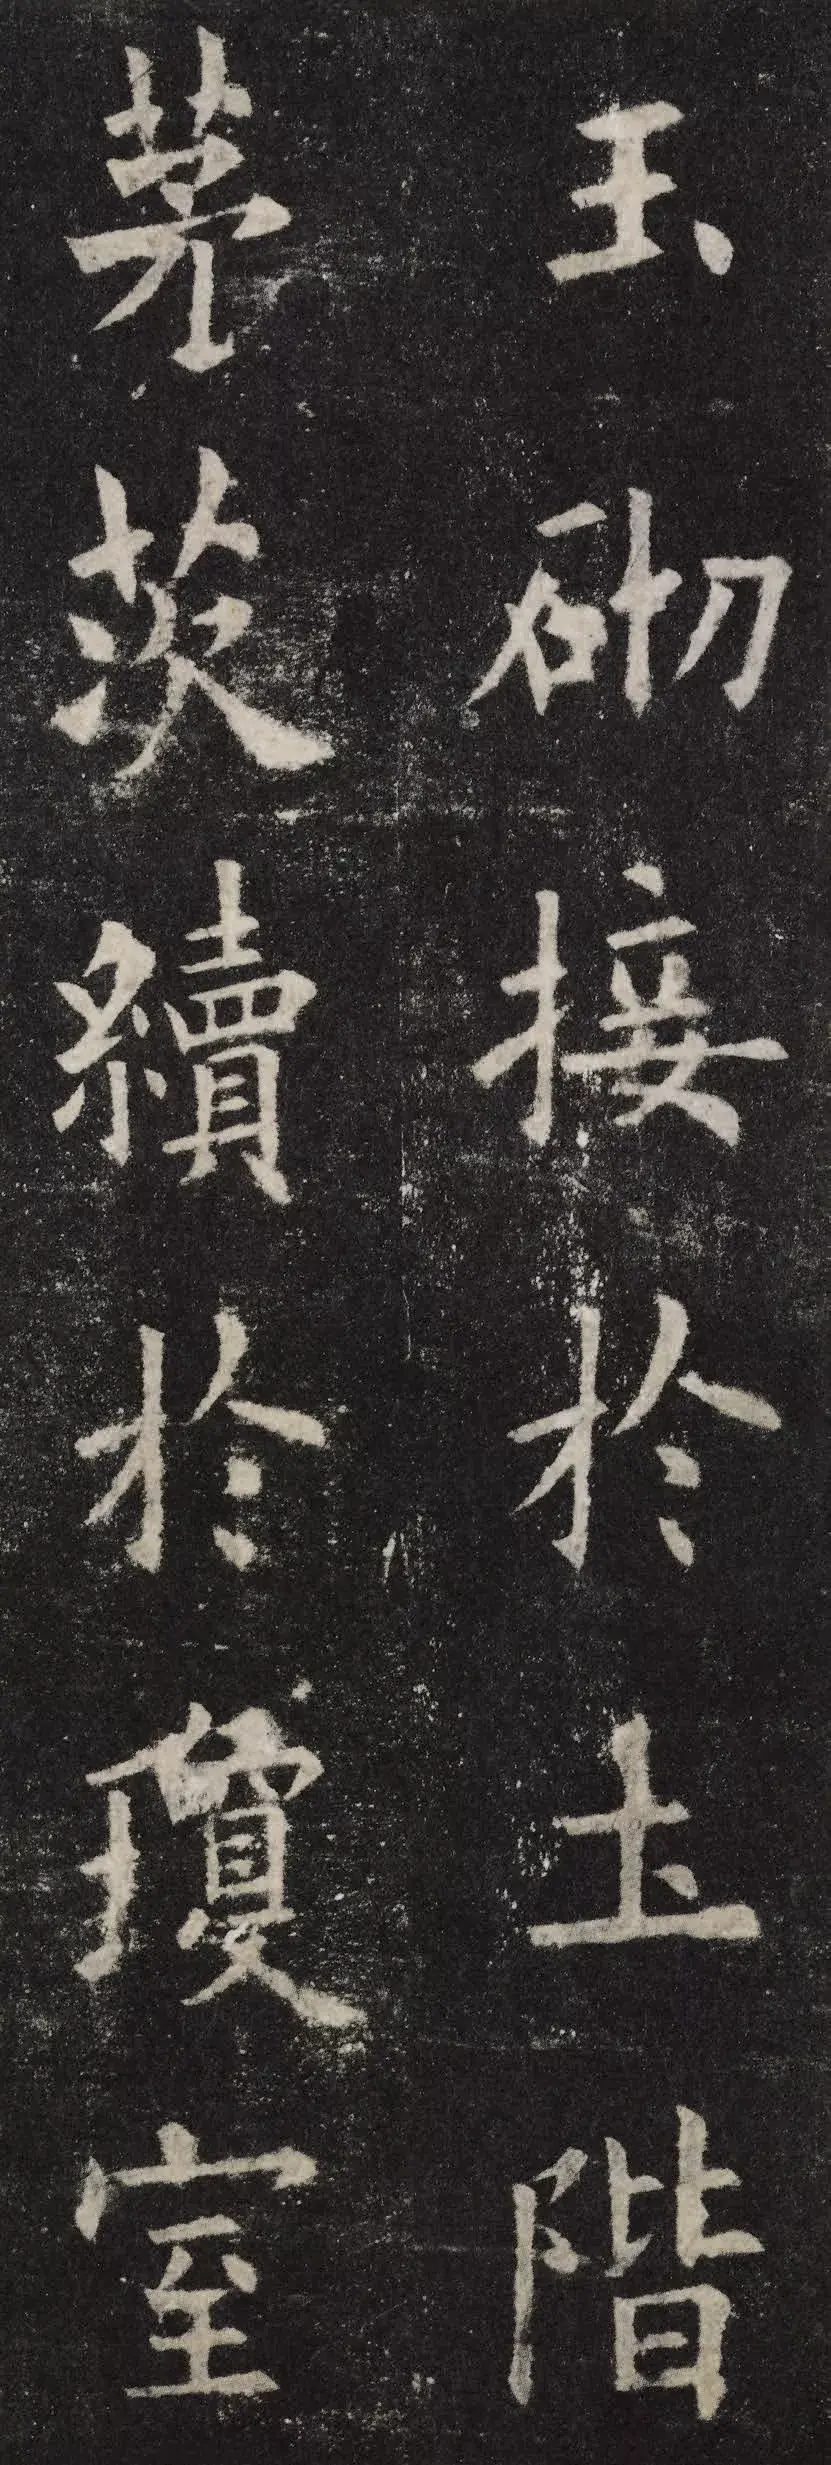 玉砌接於土階
茅茨續於瓊室